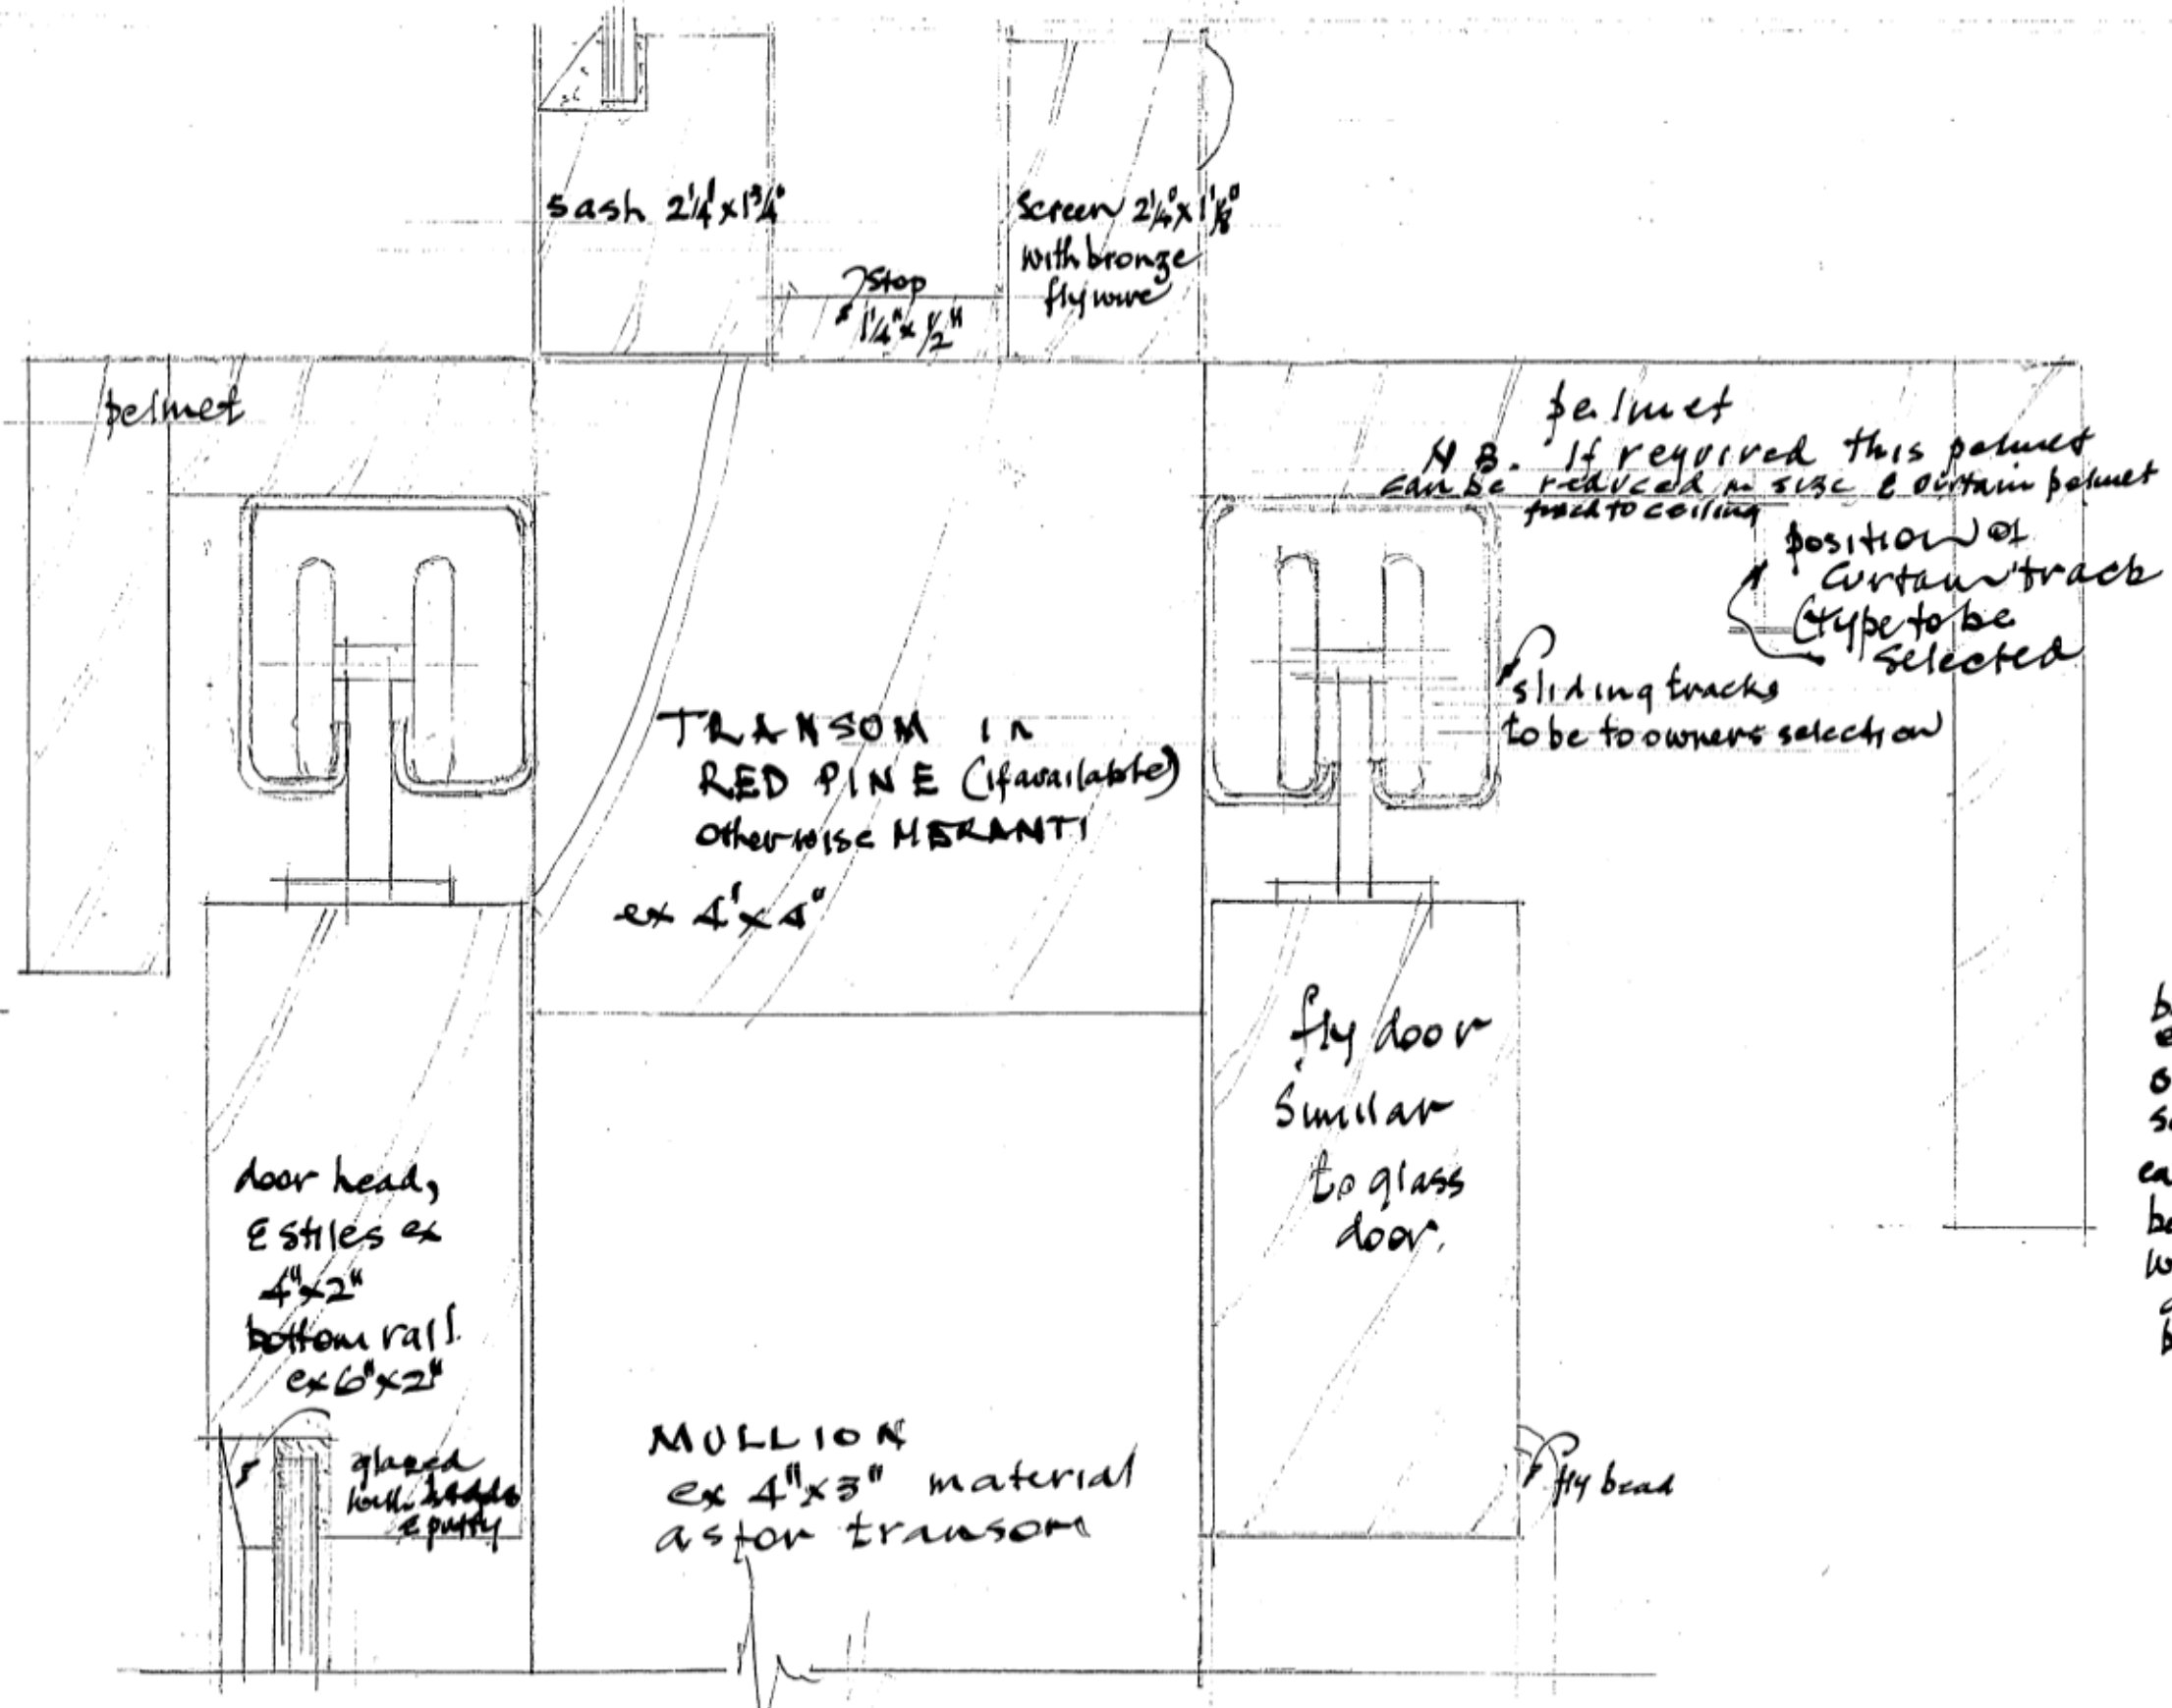 sash 2¼" x 1¾"
Stop
1¼" x ½"
Screen 2¼" x 1⅛"
with bronze
fly wire
pelmet
pelmet
N B. If required this pelmet
can be reduced in size & curtain pelmet
to ceiling
position of
curtain track
(type to be
selected
sliding tracks
to be to owners selection
TRANSOM in
RED PINE (if available)
otherwise MERANTI
ex 4" x 4"
door head,
& stiles ex
4" x 2"
bottom rail
ex 6" x 2"
glazed
with beads
& putty
MULLION
ex 4" x 3" material
as for transom
fly door
Similar
to glass
door.
fly bead